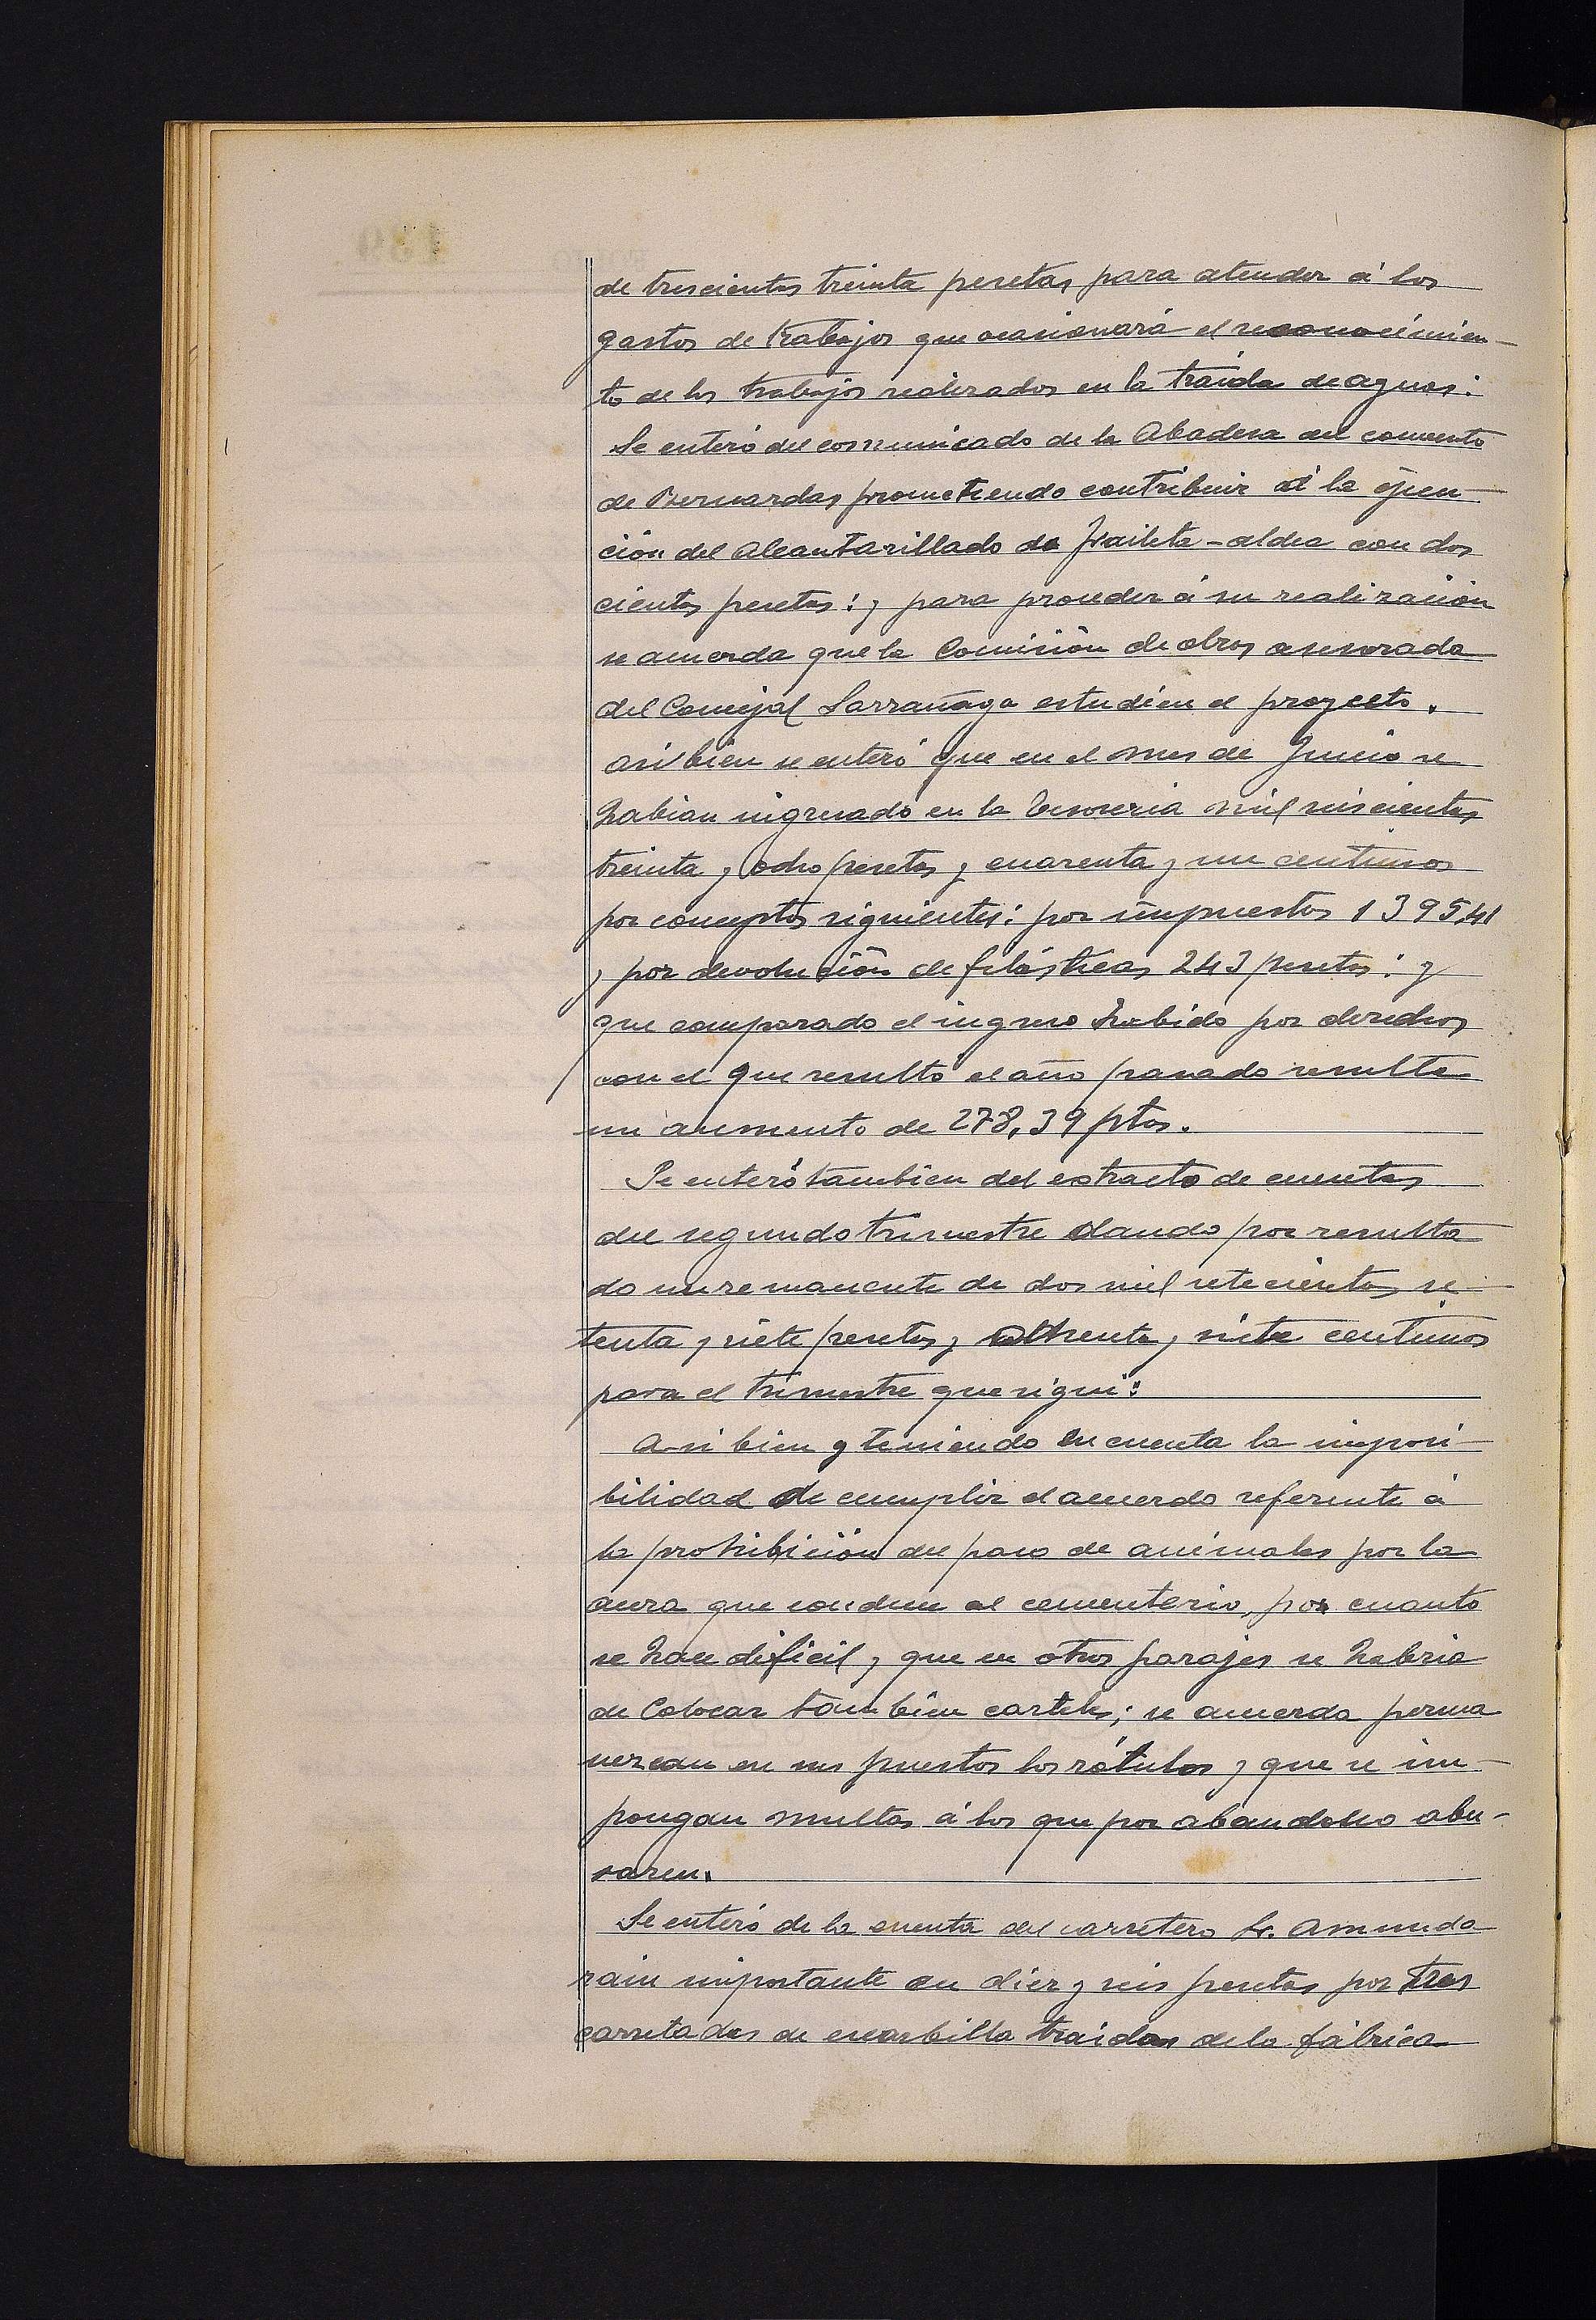 de trescientas treinta pesetas para atender á los
gastos de trabajos que ocasionará el reconocimien-
to de los trabajos realizados en la traida de aguas:
Se enteró del comunicado de la Abadesa del convento
de Bernardas prometiendo contribuir á la ejecu-
ción del alcantarillado de Fraileta-aldea con dos
cientas pesetas: y para proceder á su realización
se acuerda que la Comisión de obras asesorada
del Concejal Larrañaga estudien el proyecto.
Asi bien se enteró que en el mes de Junio se
habian ingresado en la Tesoreria mil seiscientas
treinta y ocho pesetas y cuarenta y un centimos
por conceptos siguientes: por impuestos 1395,41
y por devolución de filásticas 243 pesetas: y
que comparado el ingreso habido por derechos
con el que resultó el año pasado resulta
un aumento de 278,39 ptas.
Se enteró tambien del extracto de cuentas
del segundo trimestre dando por resulta
do un remanente de dos mil setecientas se-
tenta y siete pesetas y ochenta y siete centimos
para el trimestre que sigue:
Asi bien y teniendo en cuenta la imposi-
bilidad de cumplir el acuerdo referente á
la prohibición del paso de animales por la
acera que conduce al cementerio, por cuanto
se hace dificil y que en otros parajes se habria
de colocar tambien carteles; se acuerda perma
nezcan en sus puestos los rótulos y que se im-
pongan multas á los que por abandono abu-
saren.
Se enteró de la cuenta del carretero Sr. Amunda
rain importante en diez y seis pesetas por tres
carretadas de escarbilla traidas de la fábrica